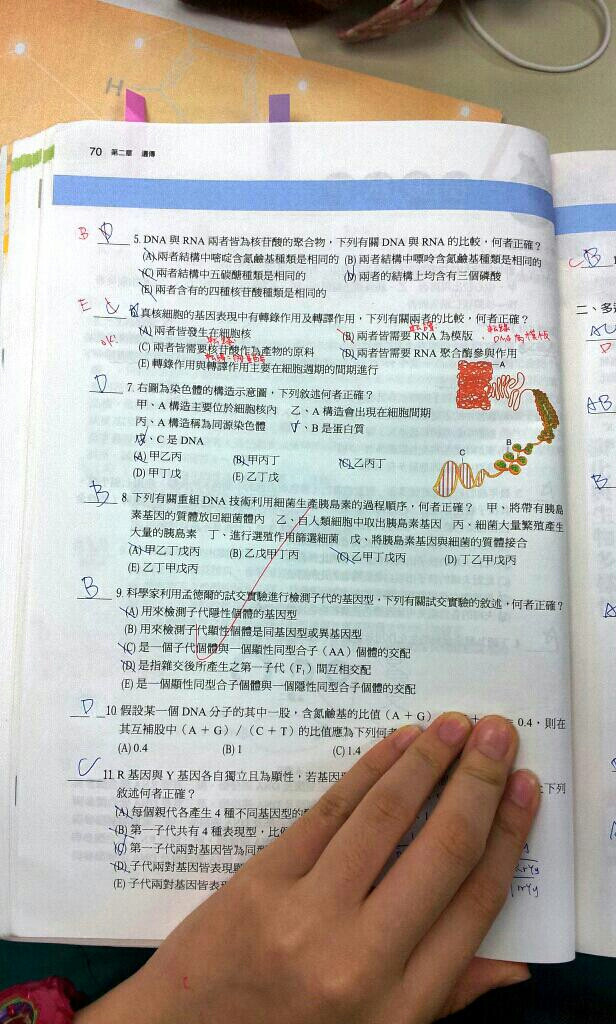 H
70 第二章 遺傳
B D 5. DNA 與 RNA 兩者皆為核苷酸的聚合物，下列有關 DNA 與 RNA 的比較，何者正確？
(A) 兩者結構中嘧啶含氮鹼基種類是相同的 (B) 兩者結構中嘌呤含氮鹼基種類是相同的
(C) 兩者結構中五碳醣種類是相同的 (D) 兩者的結構上均含有三個磷酸
(E) 兩者含有的四種核苷酸種類是相同的
E 6. 真核細胞的基因表現中有轉錄作用及轉譯作用，下列有關兩者的比較，何者正確？
(A) 兩者皆發生在細胞核 (B) 兩者皆需要 RNA 為模版 轉錄 DNA 為模板
ok. (C) 兩者皆需要核苷酸作為產物的原料 (D) 兩者皆需要 RNA 聚合酶參與作用
(E) 轉錄作用與轉譯作用主要在細胞週期的間期進行
D 7. 右圖為染色體的構造示意圖，下列敘述何者正確？
甲、A 構造主要位於細胞核內 乙、A 構造會出現在細胞間期
丙、A 構造稱為同源染色體 丁、B 是蛋白質
戊、C 是 DNA
(A) 甲乙丙 (B) 甲丙丁 (C) 乙丙丁
(D) 甲丁戊 (E) 乙丁戊
A
B
C
B 8. 下列有關重組 DNA 技術利用細菌生產胰島素的過程順序，何者正確？ 甲、將帶有胰島
素基因的質體放回細菌體內 乙、自人類細胞中取出胰島素基因 丙、細菌大量繁殖產生
大量的胰島素 丁、進行選殖作用篩選細菌 戊、將胰島素基因與細菌的質體接合
(A) 甲乙丁戊丙 (B) 乙戊甲丁丙 (C) 乙甲丁戊丙 (D) 丁乙甲戊丙
(E) 乙丁甲戊丙
B 9. 科學家利用孟德爾的試交實驗進行檢測子代的基因型，下列有關試交實驗的敘述，何者正確？
(A) 用來檢測子代隱性個體的基因型
(B) 用來檢測子代顯性個體是同基因型或異基因型
(C) 是一個子代個體與一個顯性同型合子（AA）個體的交配
(D) 是指雜交後所產生之第一子代（F₁）間互相交配
(E) 是一個顯性同型合子個體與一個隱性同型合子個體的交配
D 10. 假設某一個 DNA 分子的其中一股，含氮鹼基的比值（A + G） = 0.4，則在
其互補股中（A + G）/（C + T）的比值應為下列何者
(A) 0.4 (B) 1 (C) 1.4
C 11. R 基因與 Y 基因各自獨立且為顯性，若基因 下列
敘述何者正確？
(A) 每個親代各產生 4 種不同基因型的
(B) 第一子代共有 4 種表現型，比
(C) 第一子代兩對基因皆為同
(D) 子代兩對基因皆表現
(E) 子代兩對基因皆表
rrYy
二、多
AB